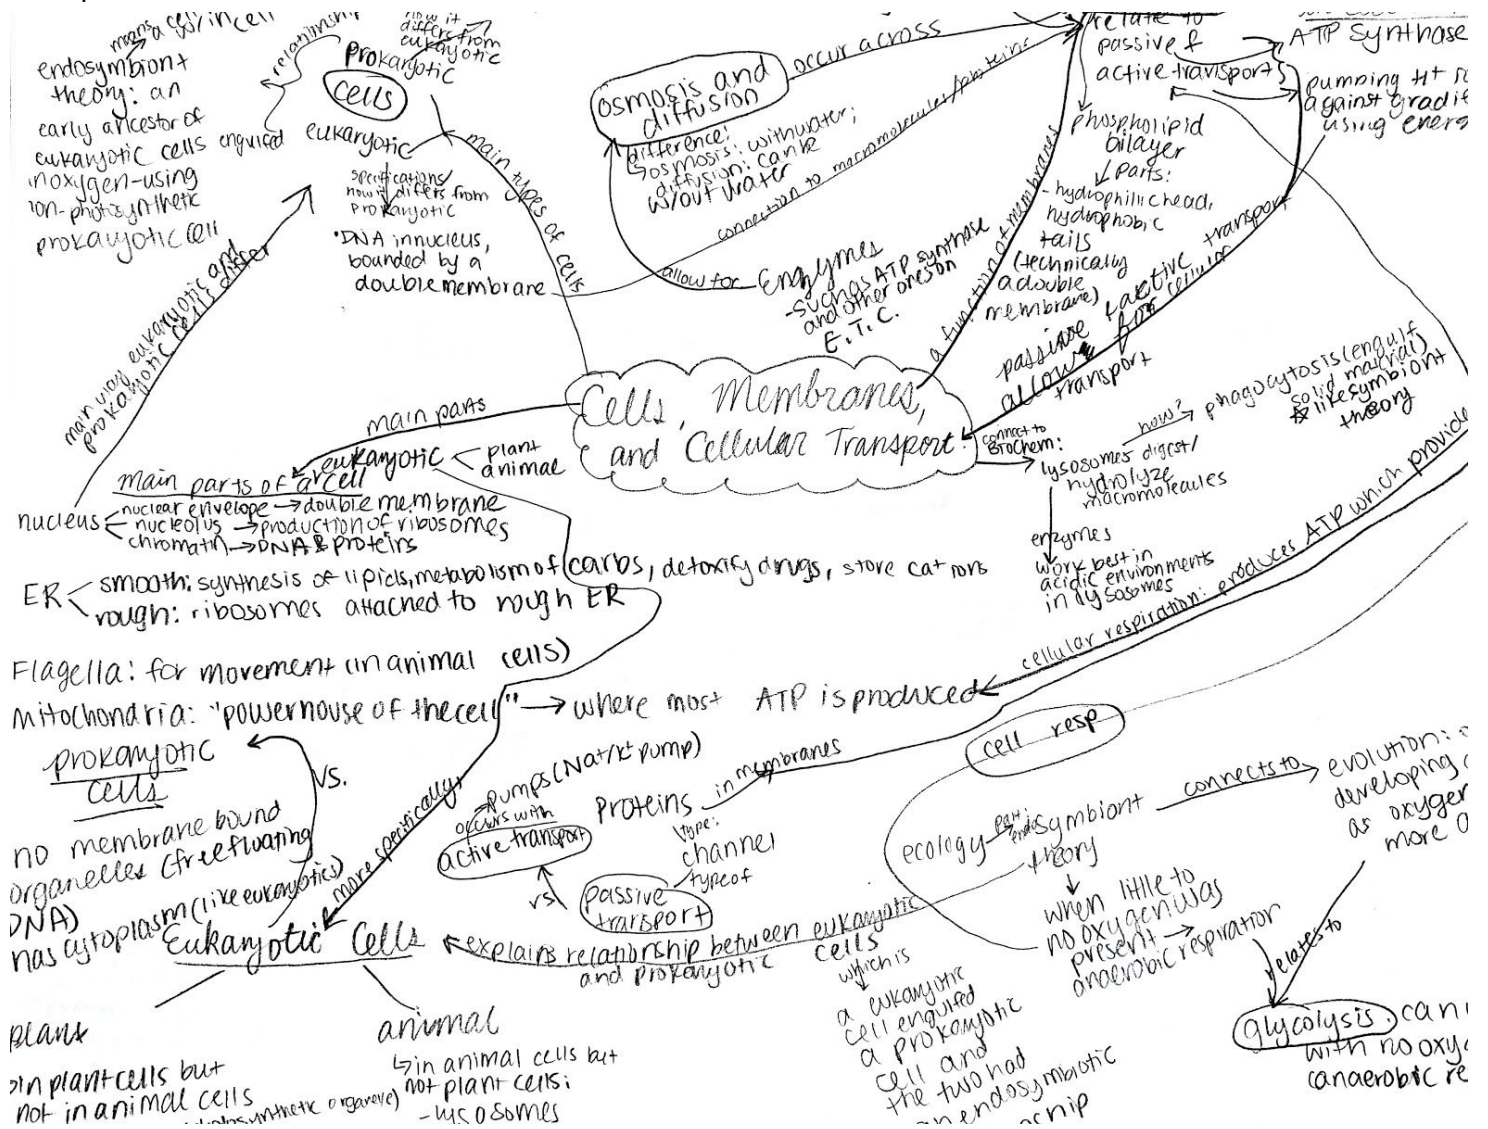 means a
endosymbiont
theory: an
early ancestor of
eukaryotic cells engulfed
an oxygen-using
non-photosynthetic
prokaryotic cell
relationship
how it
differs from
eukaryotic
prokaryotic
cells
eukaryotic
specifications/
how it differs from
prokaryotic
• DNA in nucleus,
bounded by a
double membrane
main types of cells
main way eukaryotic and
prokaryotic cells differ
osmosis and
diffusion
occur across
difference:
↳ osmosis: with water;
diffusion: can be
w/out water
connection to macromolecules/proteins
allow for
Enzymes
- such as ATP synthase
and other ones on
E.T.C.
a function of membranes
relate to
passive &
active transports
phospholipid
bilayer
↓ parts:
- hydrophilic head,
hydrophobic
tails
(technically
a double
membrane)
ATP Synthase
pumping H+
against
using
passive & active transport
allow for cellular
transport
Cells, Membranes,
and Cellular Transport
main parts
eukaryotic
plant
animal
main parts of a cell
nucleus
nuclear envelope → double membrane
nucleolus → production of ribosomes
chromatin → DNA & proteins
ER
smooth: synthesis of lipids, metabolism of carbs, detoxify drugs, store cations
rough: ribosomes attached to rough ER
Flagella: for movement (in animal cells)
Mitochondria: "powerhouse of the cell" → where most ATP is produced
connect to
Biochem:
lysosomes digest/
hydrolyze
macromolecules
how?
phagocytosis (engulf
solid material)
☆ like symbiont
theory
enzymes
work best in
acidic environments
in lysosomes
cellular respiration: produces ATP which provide
prokaryotic
cells
vs.
no membrane bound
organelles (free floating
DNA)
has cytoplasm (like eukaryotics)
more specifically,
Eukaryotic Cells
plant
in plant cells but
not in animal cells
animal
↳ in animal cells but
not plant cells:
- lysosomes
pumps (Na+/K+ pump)
occurs with
active transport
vs.
passive
transport
proteins
in membranes
type:
channel
type of
explains relationship between eukaryotic
and prokaryotic
cells
which is
a eukaryotic
cell engulfed
a prokaryotic
cell and
the two had
an endosymbiotic
cell resp
ecology
part:
endosymbiont
theory
when little to
no oxygen was
present →
anaerobic respiration
connects to
evolution:
developing
as oxygen
more
relates to
glycolysis.
can
with no